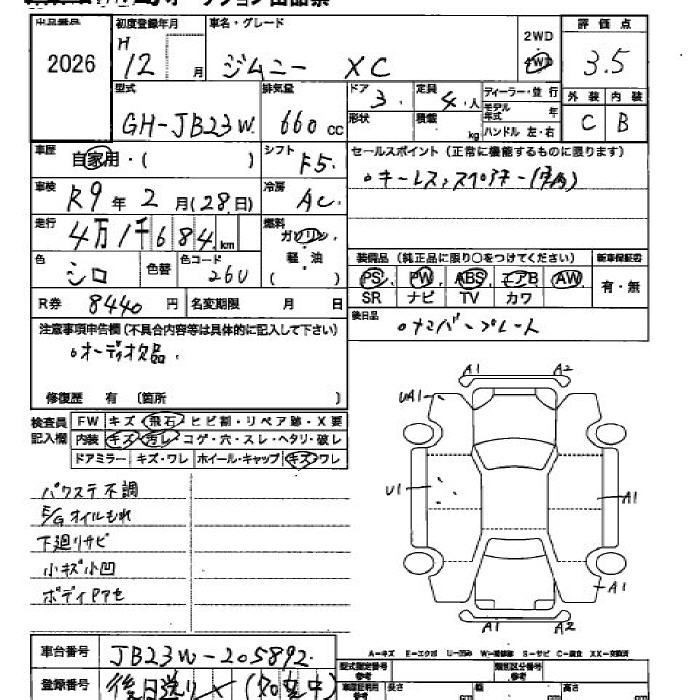 出品番号 2026
初度登録年月 H 12 月
車名・グレード ジムニー XC
2WD
4WD
評価点 3.5
型式 GH-JB23W
排気量 660 cc
ドア 3
定員 4 人
ディーラー・並行
形状
積載 kg
モデル年式 年
ハンドル 左・右
外装 C
内装 B
車歴 自家用・( )
シフト F5
セールスポイント(正常に機能するものに限ります)
車検 R9 年 2 月(28日)
冷房 AC
走行 4万1千684 km
燃料 ガソリン
軽・油
( )
色 シロ
色替
色コード 26U
装備品(純正品に限り○をつけてください)
新車保証書
PS PW ABS エアB AW
有・無
SR ナビ TV カワ
R券 8440 円
名変期限 月 日
後日品
○ナンバープレート
注意事項申告欄(不具合内容等は具体的に記入して下さい)
○オーディオ欠品.
修復歴 有 〔箇所 〕
検査員記入欄
FW キズ・飛石・ヒビ割・リペア跡・X要
内装 キズ・汚レ・コゲ・穴・スレ・ヘタリ・破レ
ドアミラー キズ・ワレ ホイール・キャップ キズ・ワレ
パワステ不調
E/Gオイルもれ
下廻リサビ
小キズ小凹
ボディアセ
A1 A2
UA1
U1
A1
A1
A1 A2
A-キズ E-エクボ U-凹み W-補修跡 S-サビ C-腐食 XX-交換済
車台番号 JB23W-205892
型式指定番号
類別区分番号
登録番号 後日送り
長さ
幅
高さ